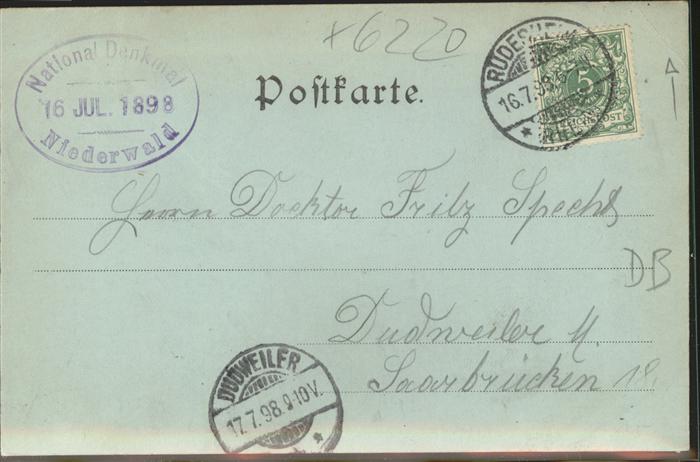 x6220
National Denkmal
16 JUL. 1898
Niederwald
Postkarte.
16.7.98
5
REICHSPOST
Herrn Docktor Fritz Specht
DB
Dudweiler
Saarbrücken
DUDWEILER
17.7.98.9-10V.